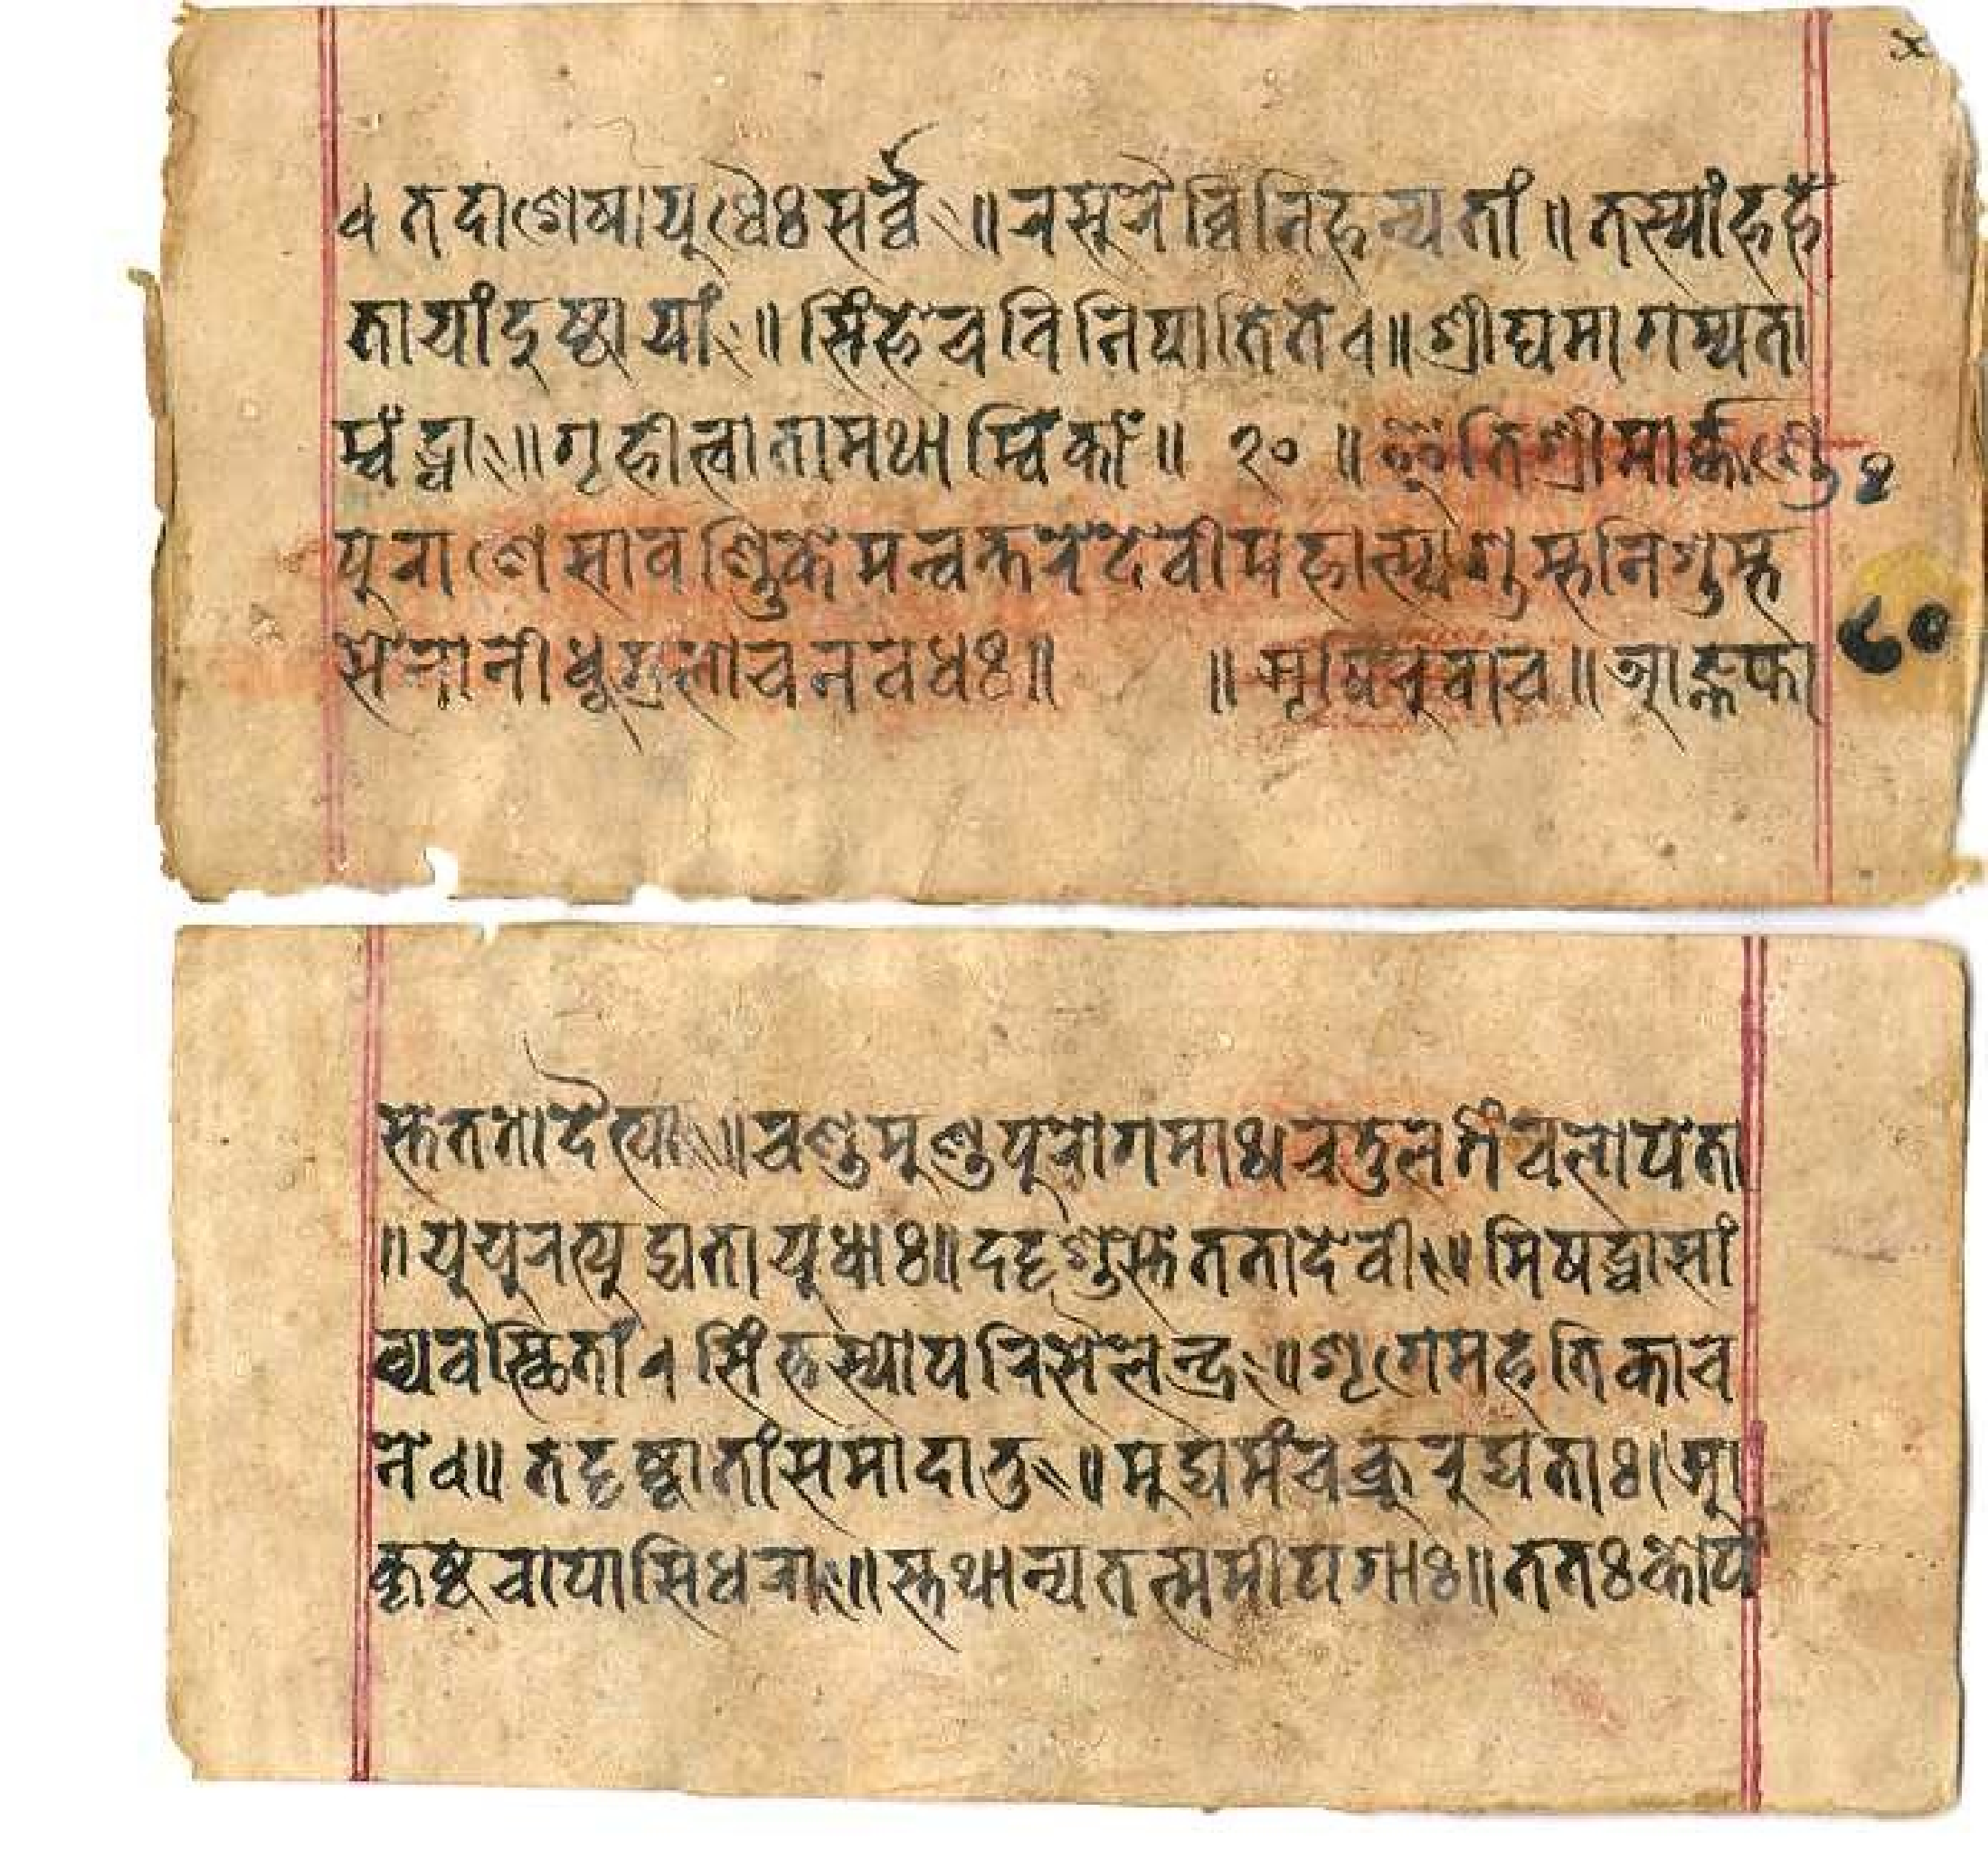 व तदाशेषायूधैः सर्व्वै॥रसूरैर्व्विनिहन्यतां॥तस्यांहह
तायांदुष्टायां॥सिंहेचविनिपातितेव॥श्रीघ्रमागम्यता
म्वंद्धा॥गृहीत्वातामथाम्विकां॥ २० ॥इतिश्रीमार्क्कण्डे
पूराणेसावर्ण्णिकेमन्वन्तरेदेवीमहात्म्येशुम्भनिशुम्भ
सेनानीधूम्रलोचनवधः॥ ॥ऋषिरुवाच॥आज्ञप्ता
८०
स्तेततोदैत्या॥चण्डमूण्डपूरोगमाः।चतुलगंवलोपेता
॥यूयूरत्यूद्यतायूधाः॥ददृशुस्तेततोदेवी॥मिषद्धासां
व्यवस्थितां।सिंहस्योपरिसैलेन्द्र॥शृगेमहतिकाच
नेव॥तदृष्ट्वातांसमादातु॥मूद्यमंचक्रूरूद्यताः।आ
कृष्टचापासिधरा॥स्तथान्यतत्समीपगाः॥ततःकोपं